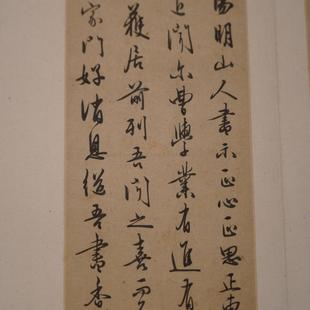 陽明山人書示正心正思正
聞尔曹學業有進有
獲居前列吾聞之喜而
家門好消息繼吾書香